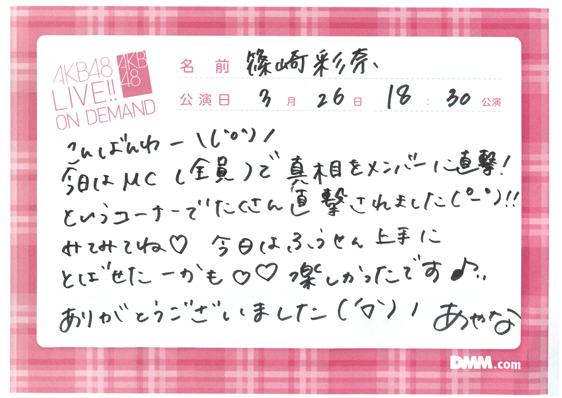 AKB48
LIVE!!
ON DEMAND
AKB
48
名前 篠崎彩奈、
公演日 3月26日 18:30公演
こんばんわー\(^o^)/
今日はMC(全員)で真相をメンバーに直撃!
というコーナーでたくさん直撃されました(°-°)!!
みてみてね♡ 今日はふうせん上手に
とばせたーかも♡♡ 楽しかったです♪..
ありがとうございました('▽')/ あやな
DMM.com